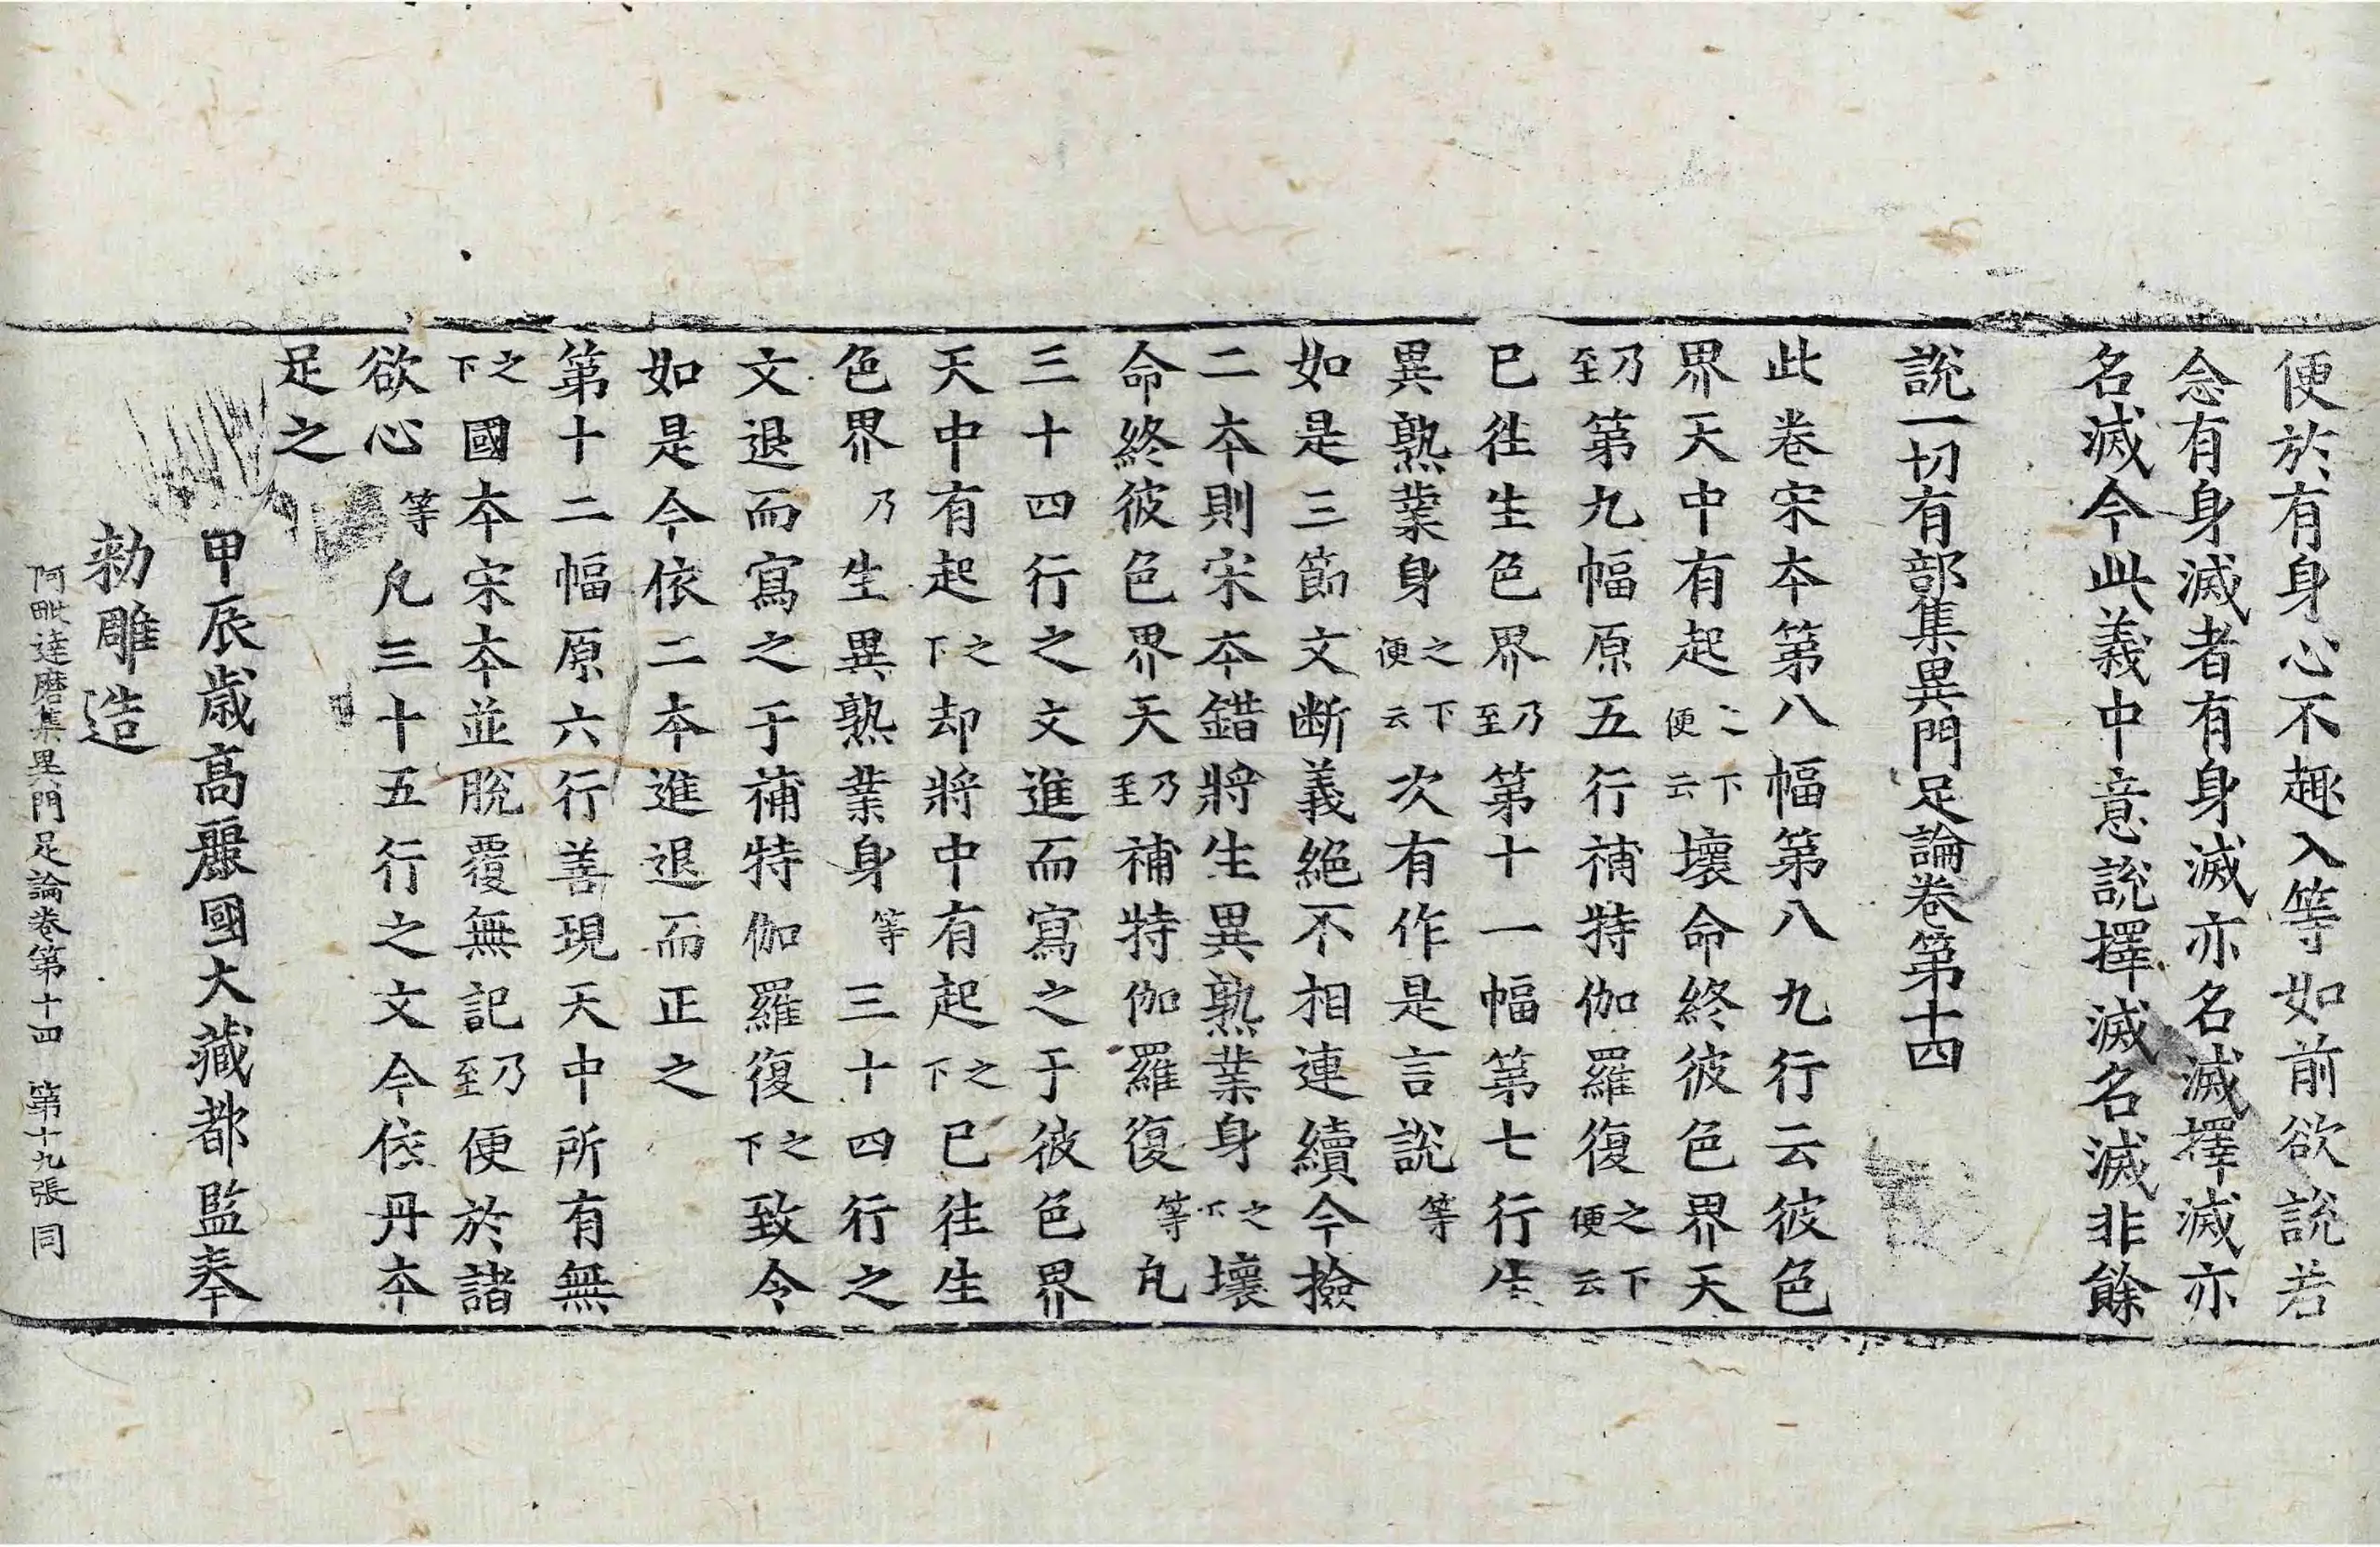 便於有身心不趣入等如前欲說若
念有身滅者有身滅亦名滅擇滅亦
名滅今此義中意說擇滅名滅非餘
說一切有部集異門足論卷第十四
此卷宋本第八幅第八九行云彼色
界天中有起之下便云壞命終彼色界天
乃至第九幅原五行補特伽羅復之下便云
已往生色界乃至第十一幅第七行生
異熟業身之下便云次有作是言說等
如是三節文断義絕不相連續今撿
二本則宋本錯將生異熟業身之下壞
命終彼色界天乃至補特伽羅復等凡
三十四行之文進而寫之于彼色界
天中有起之下却將中有起之下已往生
色界乃生異熟業身等三十四行之
文退而寫之于補特伽羅復之下致令
如是今依二本進退而正之
第十二幅原六行善現天中所有無
之下國本宋本並脫覆無記乃至便於諸
欲心等凡三十五行之文今依丹本
足之
甲辰歲高麗國大藏都監奉
勑雕造
阿毗達磨集異門足論卷第十四 第十九張 同